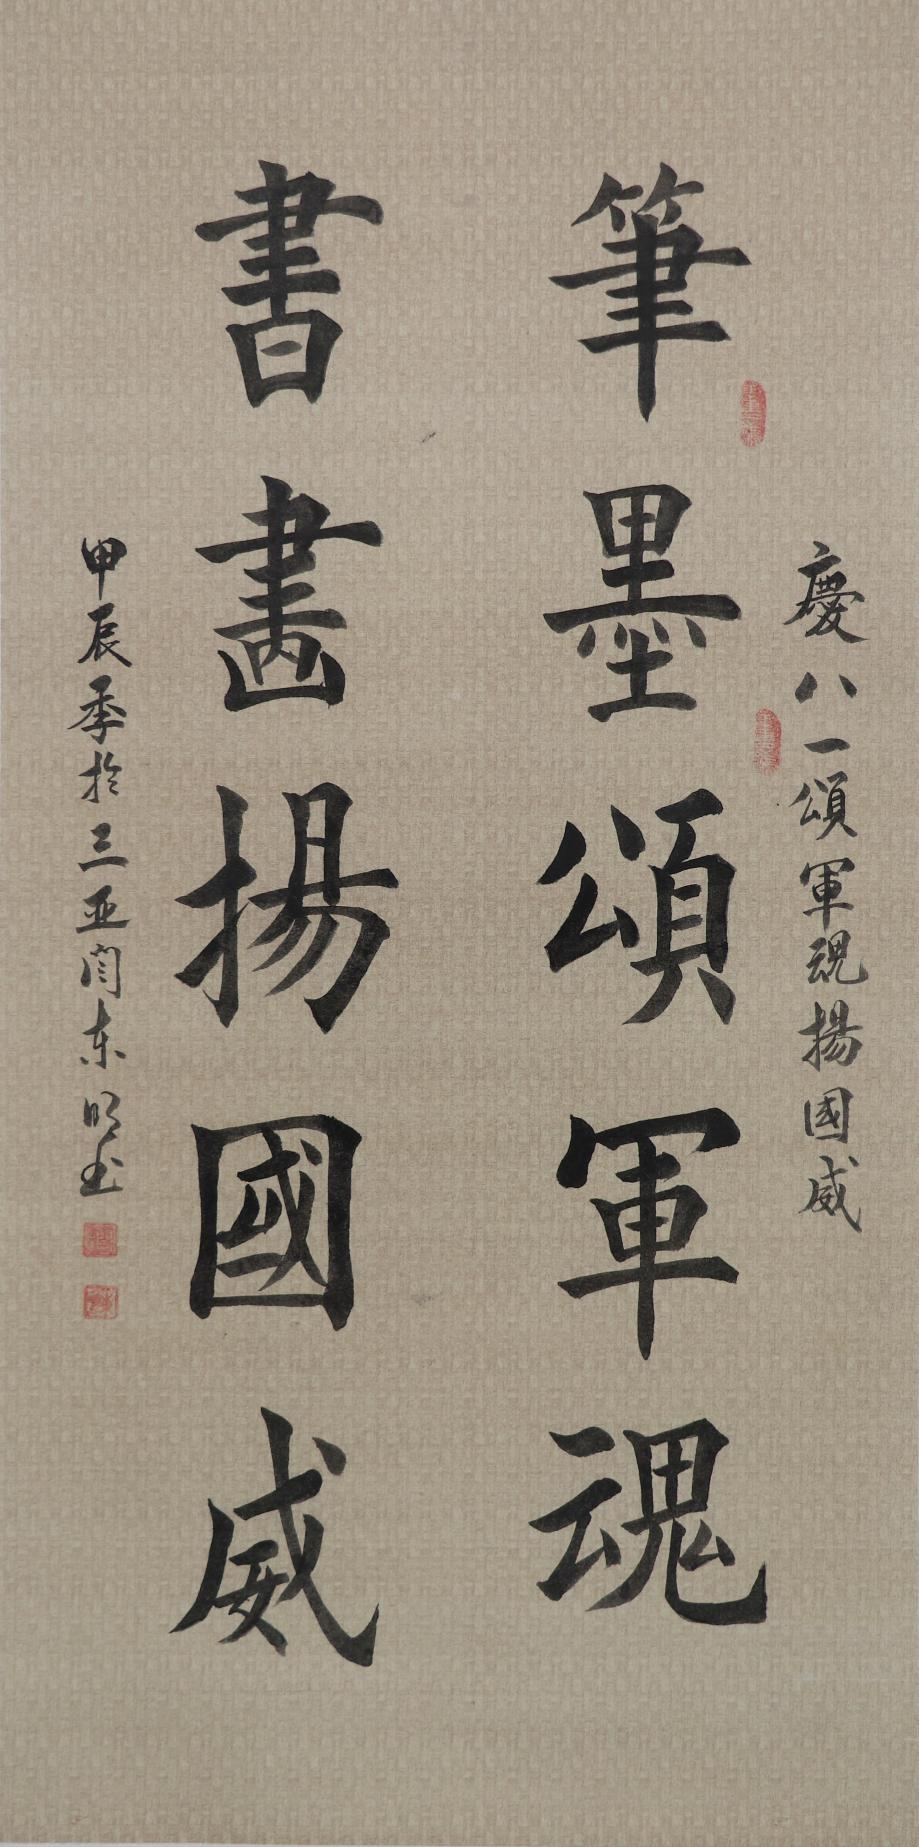 慶八一頌軍魂揚國威
筆墨頌軍魂
書畵揚國威
甲辰季於三亚闫东明书